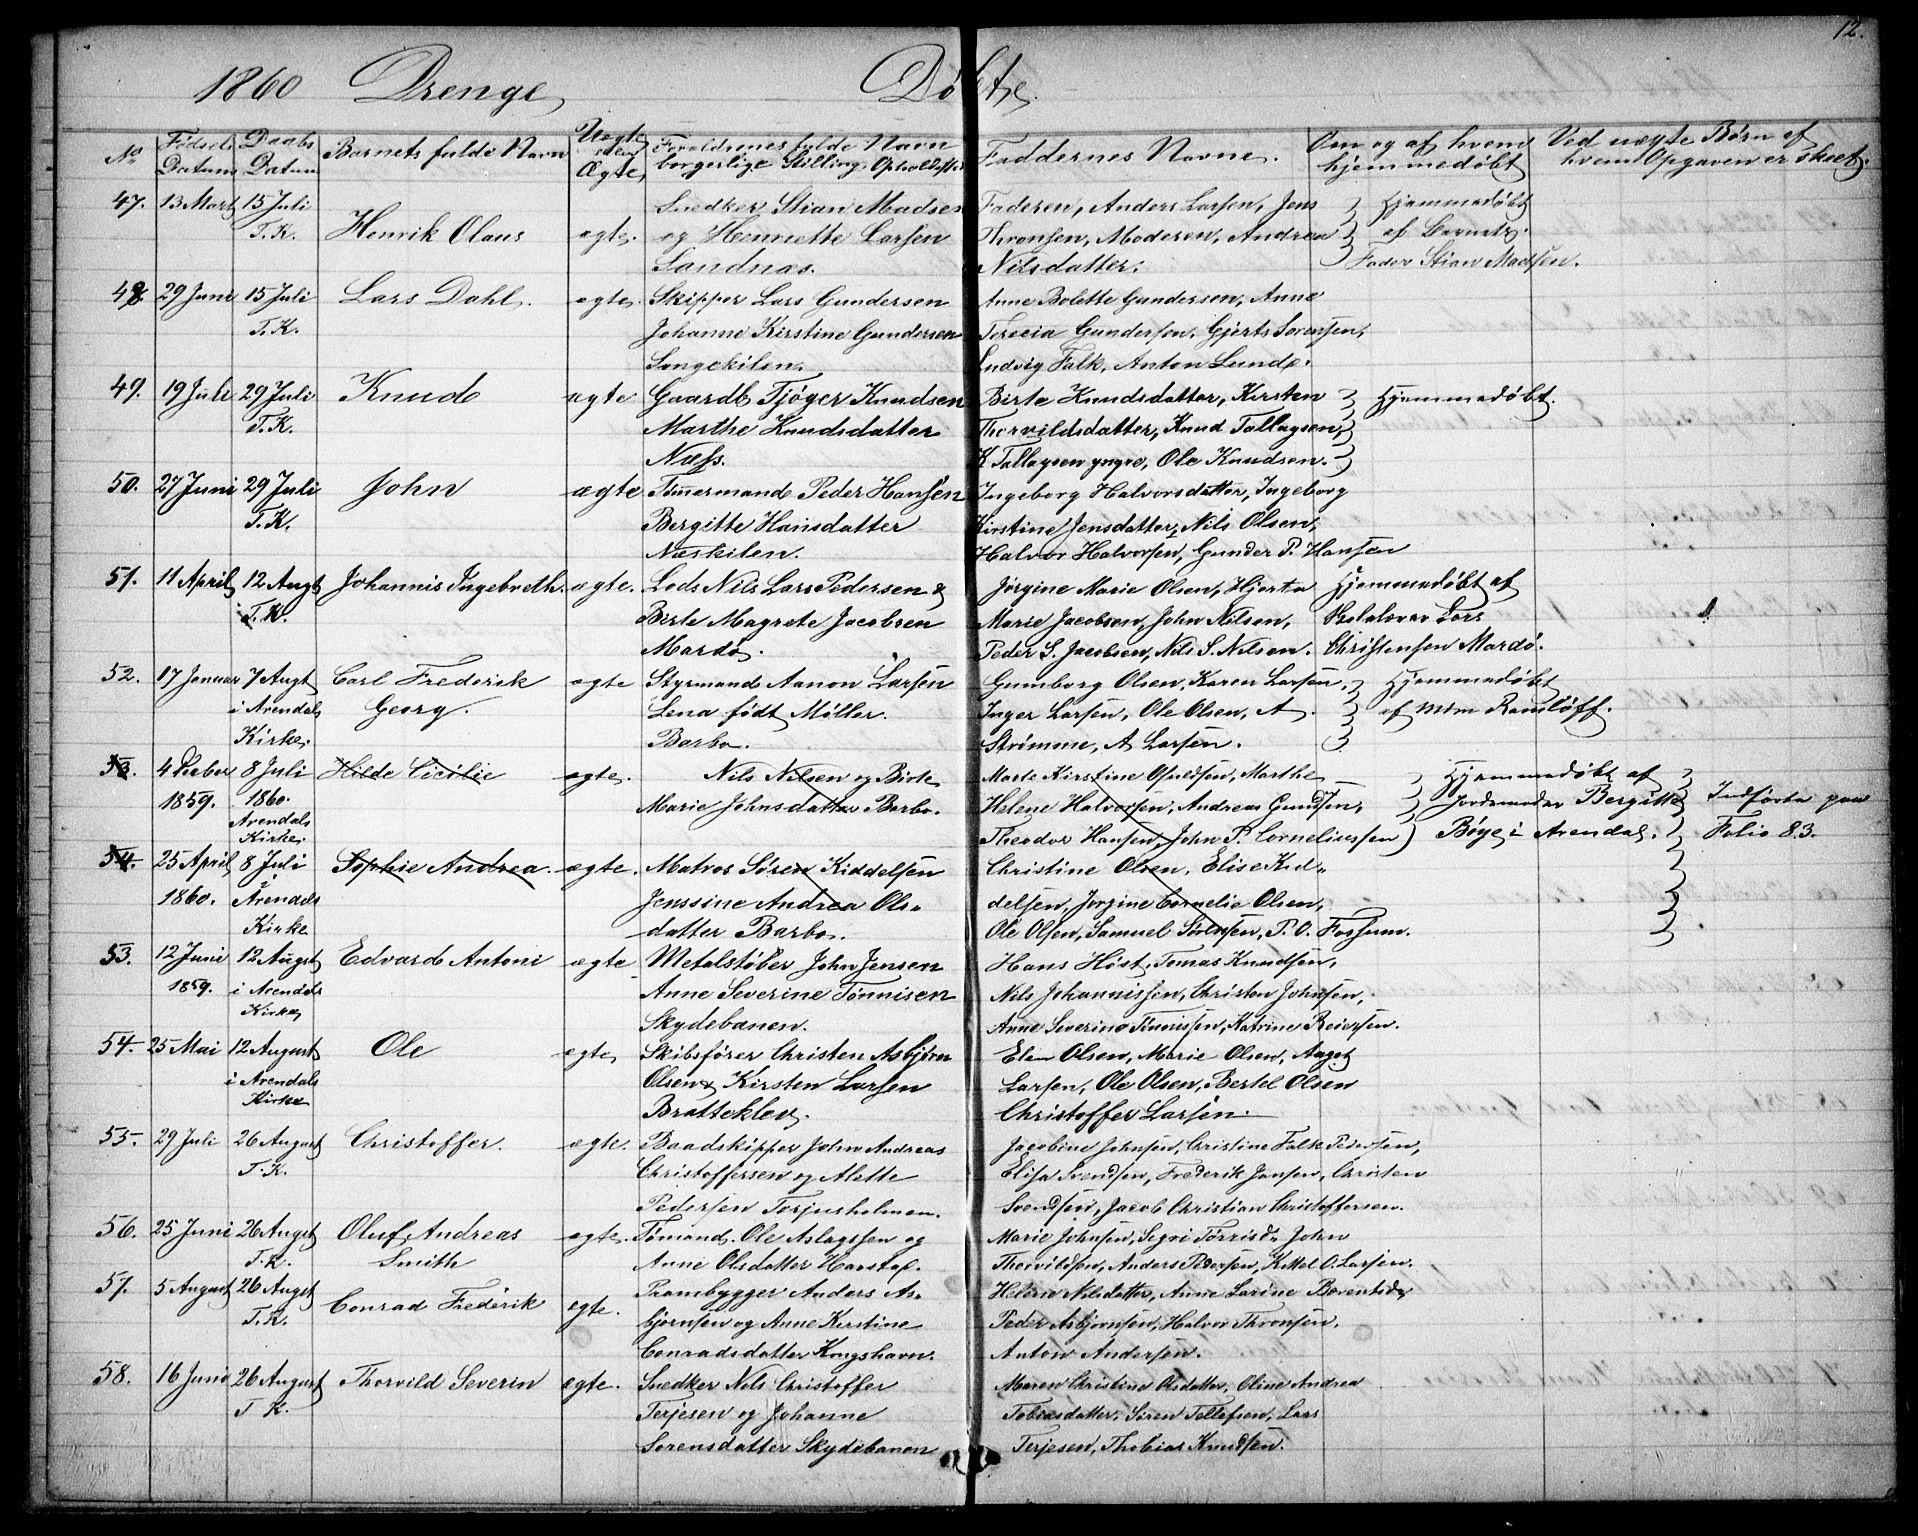 12.
1860 Drenge Døbte.
No Fødsels Datum Daabs Datum Barnets fulde Navn Uægte eller Ægte Forældrenes fulde Navn borgerlige Stilling, Opholdssted Faddernes Navne. Om og af hvem hjemmedøbt Ved uægte Børn af hvem Opgaven er skeet.
47. 13 Mart 15 Juli Snedker Stian Madsen Faderen, Anders Larsen, Jens Hjemmedøbt
T. K. Henrik Olaus ægte. og Henriette Larsen Thronsen, Moderen, Andrea af Barnets
Sandnæs. Nilsdatter. Fader Stian Madsen.
48. 29 Juni 15 Juli Lars Dahl. ægte. Skipper Lars Gundersen Anne Bolette Gundersen, Anne
T. K. Johanne Kirstine Gundersen Terecia Gundersen, Gjerts Sørensen,
Songekilen. Ludvig Falk, Anton Lunde.
49. 19 Juli 29 Juli Knud ægte Gaardb. Tjøger Knudsen Birte Knudsdatter, Kirsten Hjemmedøbt.
T. K. Marthe Knudsdatter Thorvildsdatter, Knud Tallagsen,
Næss. K Tallagsen yngre, Ole Knudsen.
50. 27 Juni 29 Juli John ægte Tømmermand Peder Hansen Ingeborg Halvorsdatter, Ingeborg
T. K. Bergitte Hansdatter Kirstine Jensdatter, Nils Olsen,
Næskilen. Halvor Halvorsen, Gunder P. Hansen
51. 11 April 12 Augt Johannis Ingebreth. ægte. Lods Nils Lars Pedersen & Jørgine Marie Olsen, Hjerta Hjemmedøbt af
i T. K. Birte Magrete Jacobsen Marie Jacobsen, John Nilsen, Skolelærer Lars
Mardø. Peder S. Jacobsen, Nils S. Nilsen. Christensen Mardø.
52. 17 Januar 7 Augt Carl Frederik ægte Styrmand Aanon Larsen Gumborg Olsen, Karen Larsen, Hjemmedøbt
i Arendals Georg. Lena født Møller. Inger Larsen, Ole Olsen, A. af Mdm Ramløff.
Kirke. Barbo. Strømme, A Larsen.
53. 4 Decber 8 Juli Hilde Cicilie ægte. Nils Nilsen og Birte Marte Kirstine Opsedsen, Marthe Hjemmedøbt af
1859. 1860. Marie Johnsdatter Barbo. Helene Halvorsen, Andreas Gundsen, Jordemoder Bergitte Indførte paa
Arendals Kirke. Theodor Hansen, John P. Corneliussen Bøye i Arendal. Folio 83.
54. 25 April 8 Juli Sophie Andrea. ægte. Matros Søren Kiddelsen Christine Olsen, Elise Kid-
1860. i Arendals Jenssine Andrea Ols- delsen, Jørgine Cornelie Olsen,
Kirke datter Barbo. Ole Olsen, Samuel Sørensen, P. O. Fossum.
53. 12 Juni 12 Augst Edvard Antoni ægte Metalstøber John Jensen Hans Høst, Tomas Knudsen,
1859. i Arendals Anne Severine Tønnisen Nils Johannissen, Christen Johnsen,
Kirke Skydebanen. Anne Severine Tønnissen, Katrine Reiersen.
54. 25 Mai 12 August Ole ægte Skibsfører Christen Asbjørn Elen Olsen, Marie Olsen, August
i Arendals Olsen & Kirsten Larsen Larsen, Ole Olsen, Bertel Olsen
Kirke Bratteklev. Christoffer Larsen.
55. 29 Juli 26 August Christoffer. ægte. Baadskipper John Andreas Jacobine Johnsen, Christine Falk Pedersen,
T. K. Christoffersen og Alette Elisa Svendsen, Frederik Jansen, Christen
Pedersen Torjusholmen. Svendsen, Jacob Christian Christoffersen.
56. 25 Juni 26 Augst Oluf Andreas ægte. Tømand. Ole Aslagssen og Marie Johnsen, Segri Tørrisd. John
T. K. Smith Anne Olsdatter Harstap. Thorvildsen, Anders Pedersen, Kittel O. Larsen.
57. 5 August 26 Augst Conrad Frederik ægte. Prambygger Anders As- Helene Nilsdatter, Anne Larine Berentsd.
T. K. bjørnsen og Anne Kirstine Peder Asbjørnsen, Halvor Thronsen,
Conradsdatter Kongshavn. Anton Andersen.
58. 16 Juni 26 August Thorvild Severin ægte. Snedker Nils Christoffer Maren Christine Olsdatter, Oline Andrea
T. K. Terjesen og Johanne Tobiasdatter, Siren Tellefsen, Lars
Sørensdatter Skydebanen Terjesen, Thobias Knudsen.